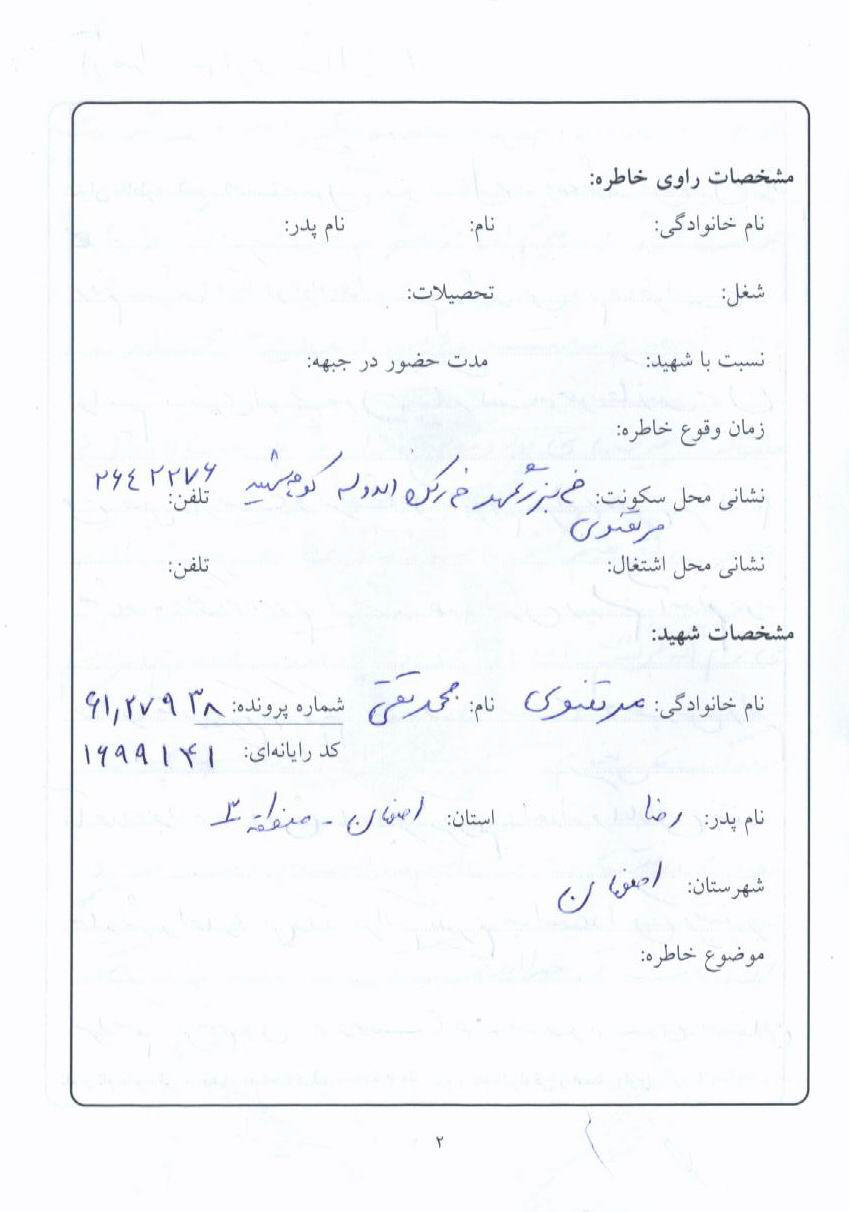 مشخصات راوی خاطره:
نام خانوادگی: نام: نام پدر:
شغل: تحصیلات:
نسبت با شهید: مدت حضور در جبهه:
زمان وقوع خاطره:
نشانی محل سکونت: خ بزرگمهر خ رکن الدوله کوچه شهید تلفن: ۲۶۴۲۲۷۶
مرتضوی
نشانی محل اشتغال: تلفن:
مشخصات شهید:
نام خانوادگی: مرتضوی نام: محمدتقی شماره پرونده: ۶۱,۲۷۹۳۸
کد رایانه‌ای: ۱۶۹۹۱۴۱
نام پدر: رضا استان: اصفهان - منطقه ۳
شهرستان: اصفهان
موضوع خاطره:
۲